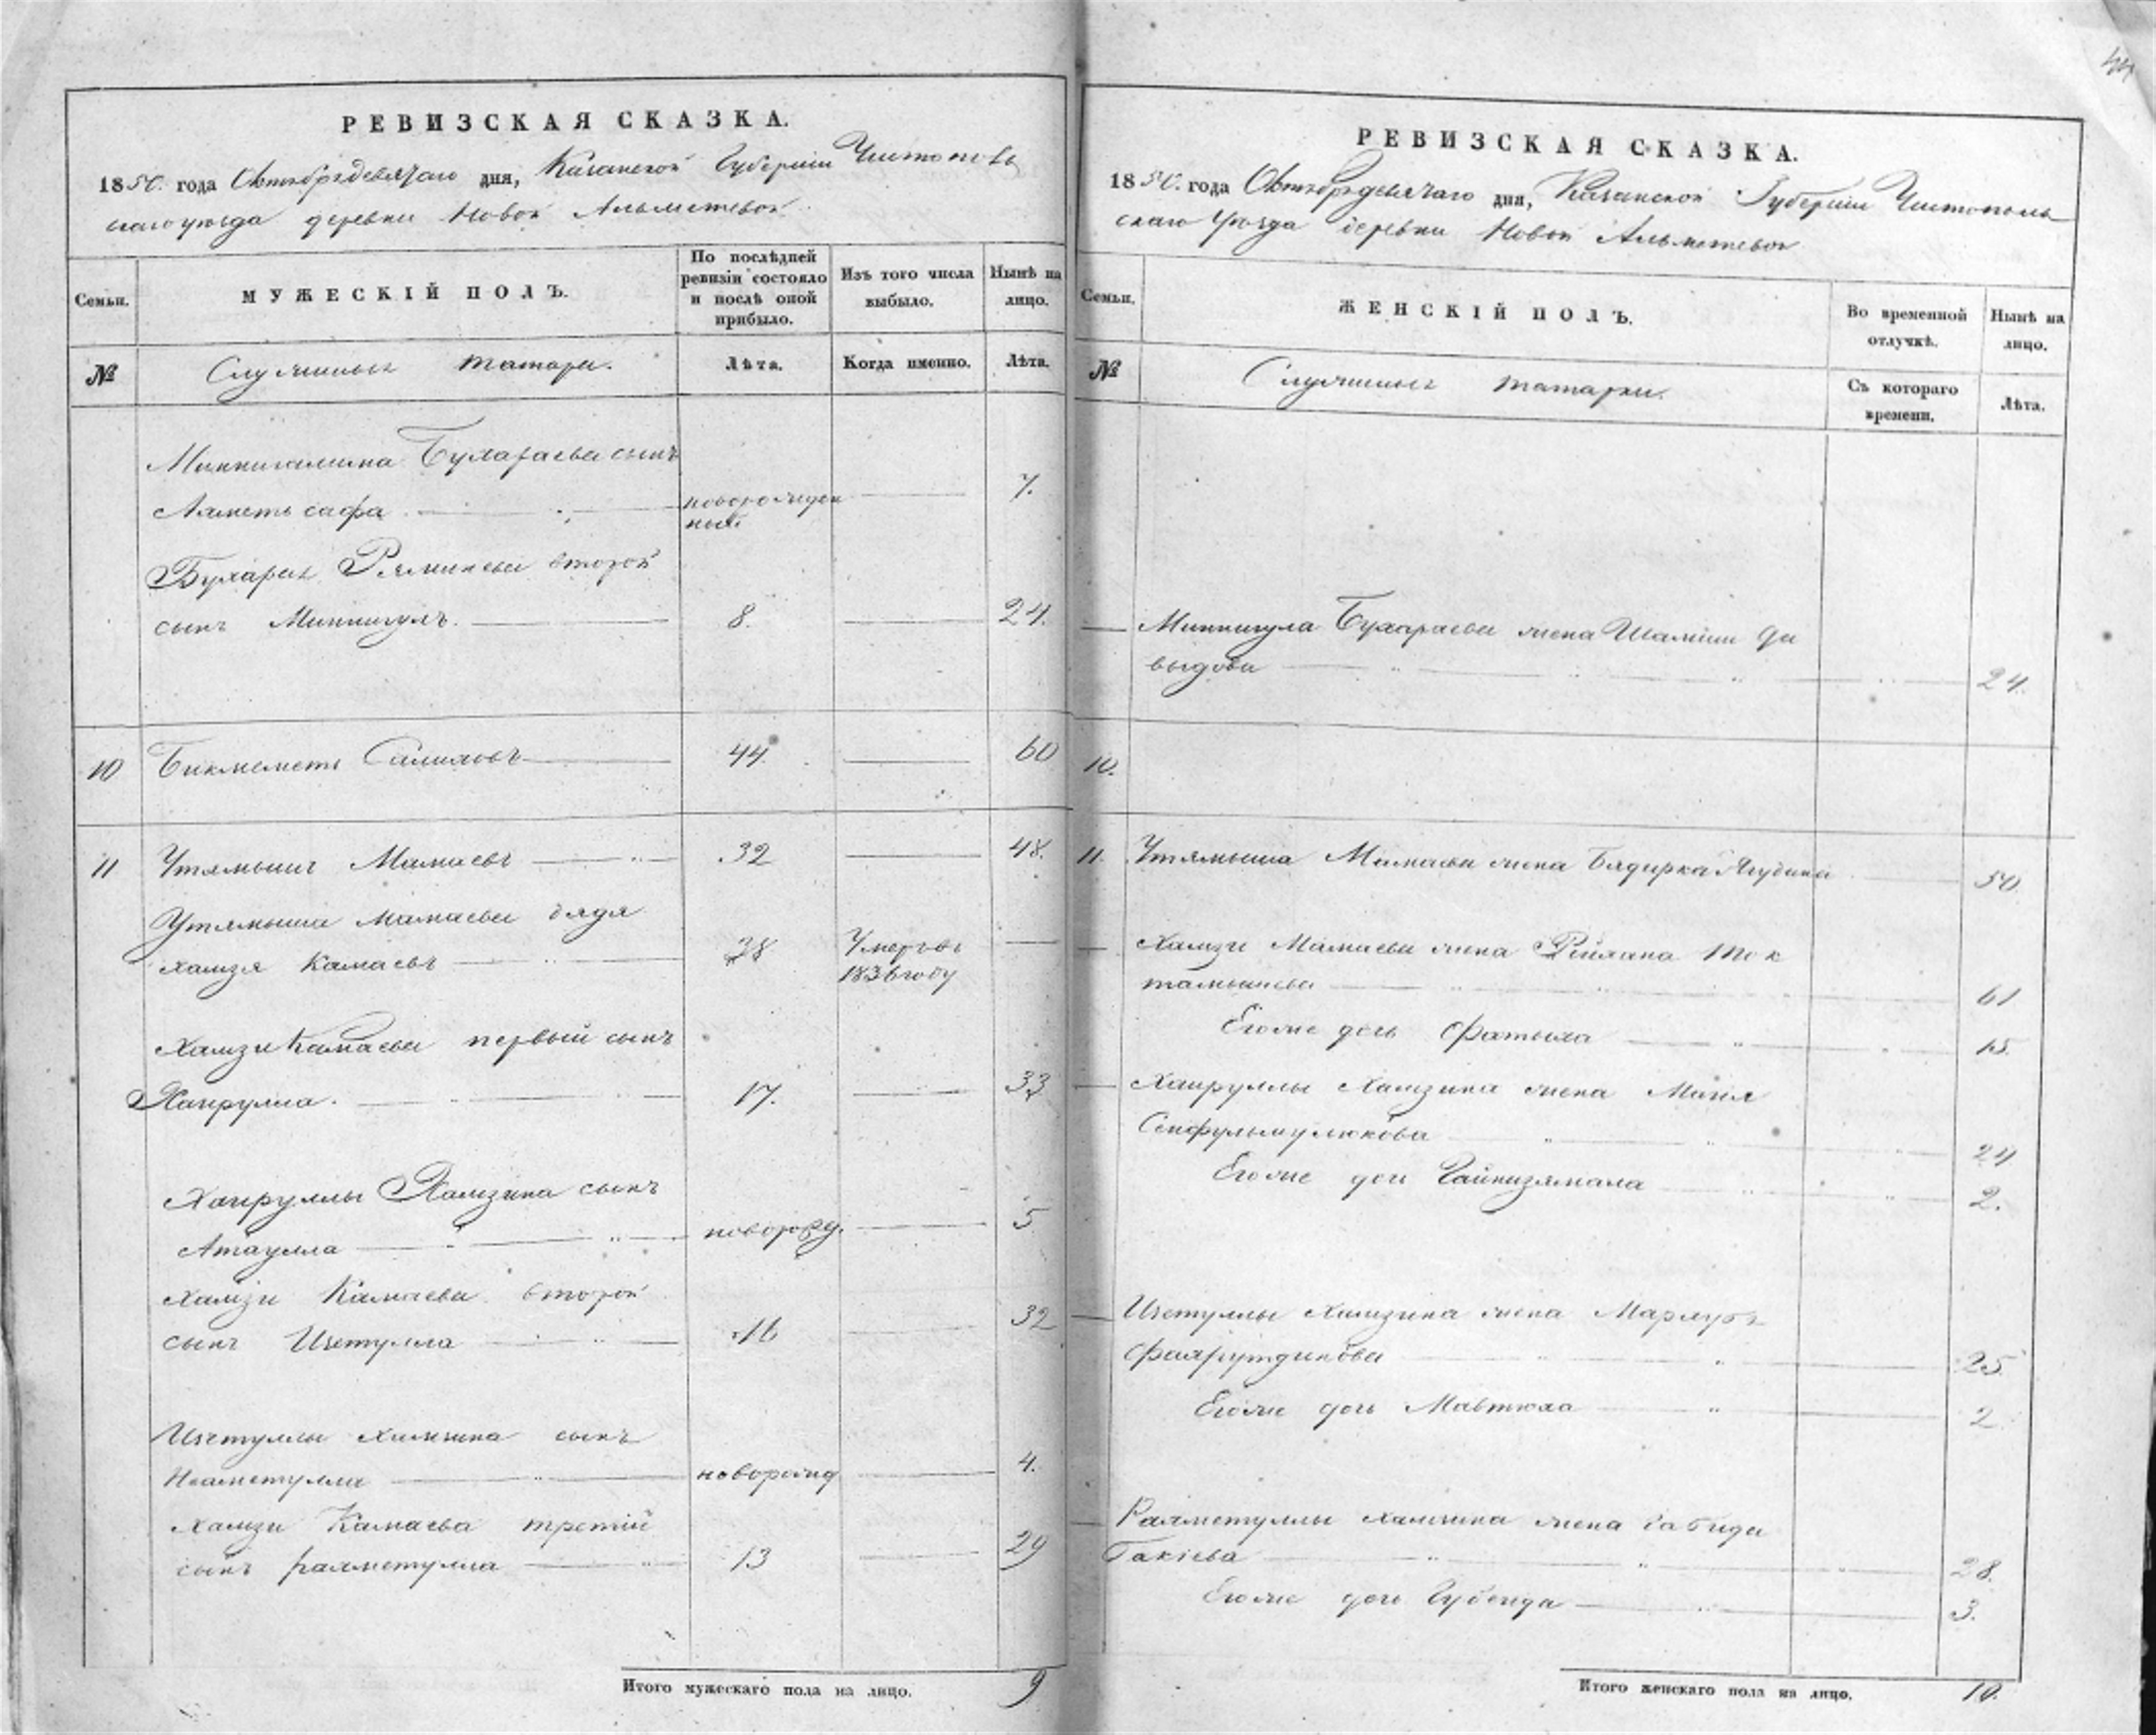 44
РЕВИЗСКАЯ СКАЗКА.
1850. года Октября девятаго дня, Казанской Губерніи Чистополь
скаго уѣзда деревни Новой Альметевой
Семьи.
МУЖЕСКІЙ ПОЛЪ.
По послѣдней
ревизіи состояло
и послѣ оной
прибыло.
Изъ того числа
выбыло.
Нынѣ на
лицо.
№
Служилые татары.
Лѣта.
Когда именно.
Лѣта.
Миннигалима Бухараева сынъ
Ахметь сафа новорожден 7.
ный
Бухарая второй
сынъ Миннигулъ. 8. 24.
10 Бикмеметь Салиховъ 44. 60
11 Утямышъ Мамаевъ 32 48.
Утямыша Мамаева дядя
Хамзя Камаевъ 38 Умеръ въ
1836 году
Хамзи Камаева первый сынъ
Хайрулла. 17. 33
Хайруллы Хамзина сынъ
Атаулла новорожд. 5
Хамзи Камаева второй
сынъ Изетулла 16 32
Изетуллы Хамзина сынъ
Неаметулла новорожд 4.
Хамзи Камаева третій
сынъ Рахметулла 13 29
Итого мужескаго пола на лицо. 9
РЕВИЗСКАЯ СКАЗКА.
1850. года Октября девятаго дня, Казанской Губерніи Чистополь
скаго Уѣзда деревни Новой Альметевой
Семьи.
ЖЕНСКІЙ ПОЛЪ.
Во временной
отлучкѣ.
Нынѣ на
лицо.
№
Служилые татарки.
Съ котораго
времени.
Лѣта.
Миннигула Бухараева жена Шамши Да
выдова 24.
10.
11. Утямыша Мамаева жена Бядирка Ягудина 50.
Хамзи Мамаева жена Рейхана Ток
тамышева 61
Его же дочь Фатыха 15.
Хайруллы Хамзина жена
Сейфульмулюкова 24
Его же дочь Гайнизямала 2.
Изетуллы Хамзина жена Марзуба
Фахрутдинова 25.
Его же дочь Мавтюха 2
Рахметуллы Хамзина жена Габида
Такіева 28.
Его же дочь Губейда 3.
Итого женскаго пола на лицо. 10.